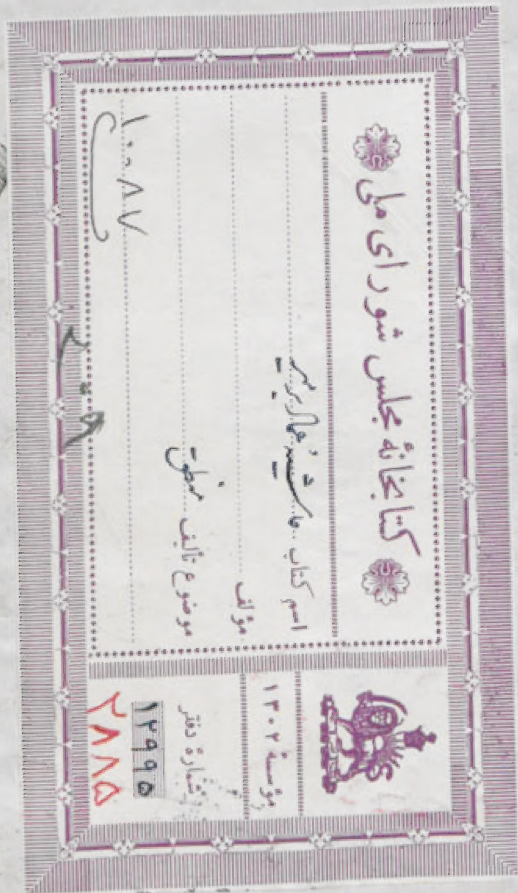 کتابخانهٔ مجلس شورای ملی
اسم کتاب حاشیه
مؤلف
موضوع تألیف منطق
۱۰۰۸۷
مؤسسهٔ ۱۳۰۲
شمارهٔ دفتر
۱۲۹۹۵
۲۸۸۵